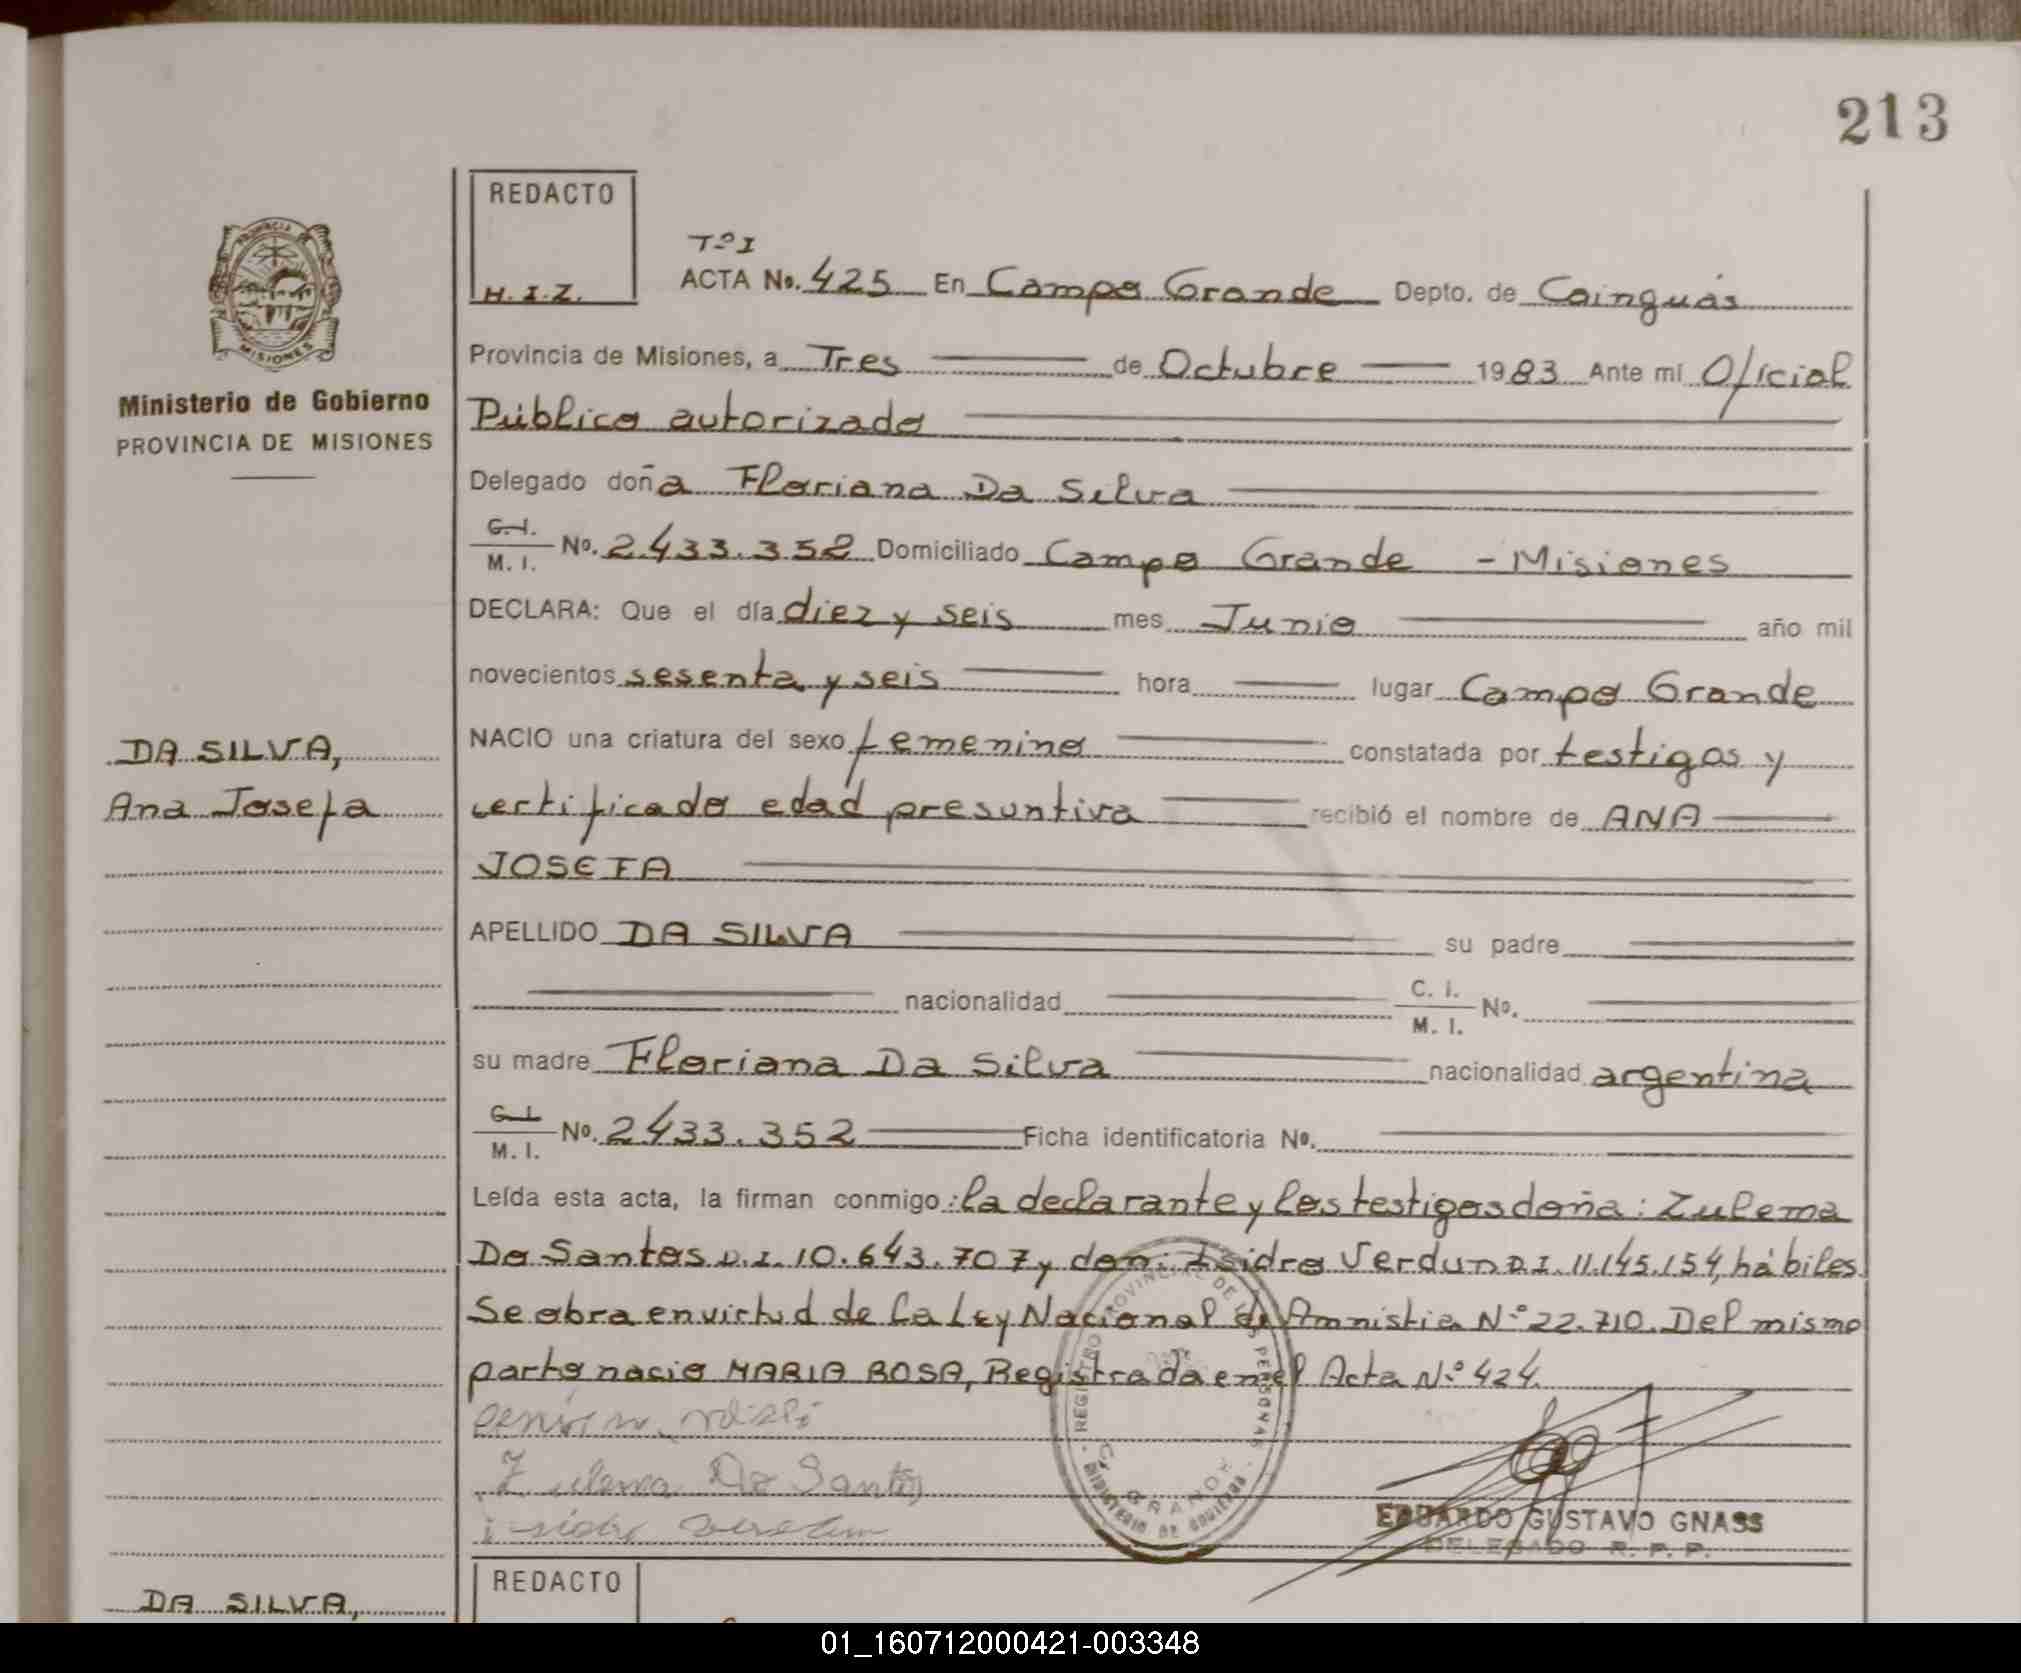 213
REDACTO
H.I.Z.
Tº I
ACTA No. 425 En Campo Grande Depto. de Cainguás
Provincia de Misiones, a Tres de Octubre 1983 Ante mi Oficial
Público autorizado
Delegado doña Floriana Da Silva
C.I.
M.I. No. 2.433.352 Domiciliado Campo Grande - Misiones
DECLARA: Que el día diez y seis mes Junio año mil
novecientos sesenta y seis hora lugar Campo Grande
NACIO una criatura del sexo femenino constatada por testigos y
certificado edad presuntiva recibió el nombre de ANA
JOSEFA
APELLIDO DA SILVA su padre
nacionalidad C. I.
M. I. No.
su madre Floriana Da Silva nacionalidad argentina
C.I.
M.I. No. 2.433.352 Ficha identificatoria No.
Leída esta acta, la firman conmigo: la declarante y los testigos doña: Zulema
Do Santos D.I. 10.643.707 y don: Isidro Verdun D.I. 11.145.154, hábiles.
Se obra en virtud de la Ley Nacional de Amnistia Nº 22.710. Del mismo
parto nacio MARIA ROSA, Registrada en el Acta Nº 424.
Zulema Do Santos
isidro verdun
REGISTRO PROVINCIAL DE LAS PERSONAS
C. GRANDE
MINISTERIO DE GOBIERNO
EDUARDO GUSTAVO GNASS
DELEGADO R. P. P.
PROVINCIA DE
MISIONES
Ministerio de Gobierno
PROVINCIA DE MISIONES
DA SILVA,
Ana Josefa
DA SILVA,
REDACTO
01_160712000421-003348